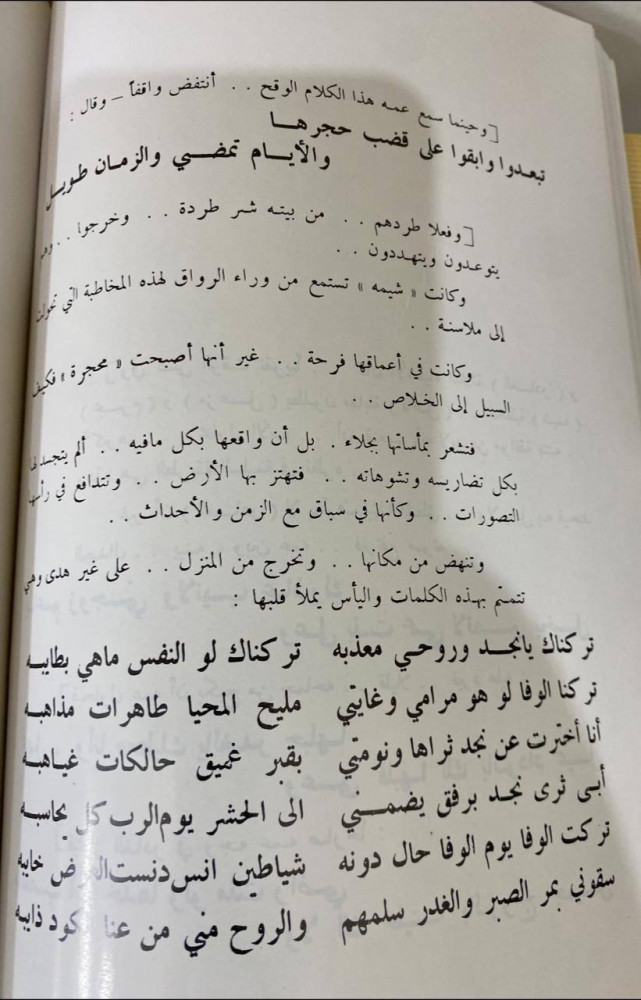 [ وحينما سمع عمه هذا الكلام الوقح . . أنتفض واقفاً – وقال :
تبعدوا وابقوا على قضب حجرهـا
والأيـام تمضـي والزمـان طويـل
[ وفعلا طردهم . . من بيته شر طردة . . وخرجوا . . وهم
يتوعدون ويتهددون . .
وكانت « شيمه » تستمع من وراء الرواق لهذه المخاطبة التي تحولت
إلى ملاسنة . .
وكانت في أعماقها فرحة . . غير أنها أصبحت « محجرة » فكيف
السبيل إلى الخلاص . .
فتشعر بمأساتها بجلاء . بل أن واقعها بكل مافيه . . ألم يتجسد لها
بكل تضاريسه وتشوهاته . . فتهتز بها الأرض . . وتتدافع في رأسها
التصورات . . وكأنها في سباق مع الزمن والأحداث . .
وتنهض من مكانها . . وتخرج من المنزل . . على غير هدى وهي
تتمتم بهذه الكلمات واليأس يملأ قلبها :
تركناك يانجـد وروحـي معذبه تركناك لو النفس ماهي بطايبـه
تركنا الوفا لو هو مرامي وغايتي مليح المحيا طاهرات مذاهبـه
أنا أخترت عن نجد ثراها ونومتي بقبر غميق حالكات غياهبـه
أبى ثرى نجـد برفق يضمـني الى الحشر يوم الرب كل يحاسبه
تركت الوفا يوم الوفا حال دونه شياطين انس دنست العرض خايبه
سقوني بمر الصبر والغدر سلمهم والروح مني من عنا الكود ذايبه